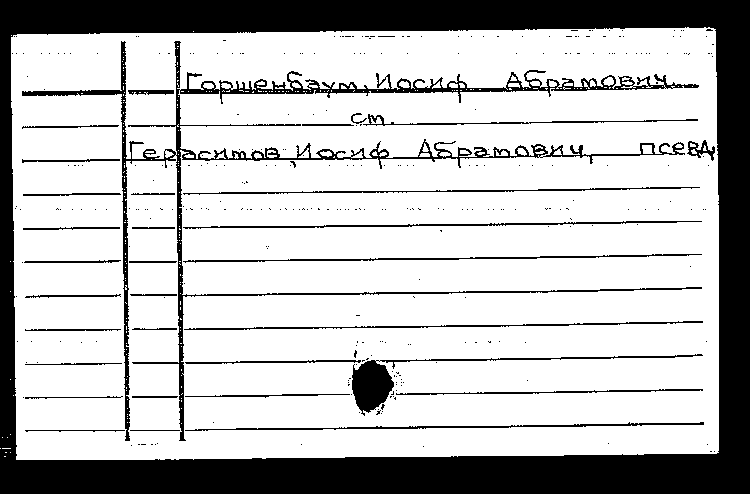 Горшенбаум, Иосиф Абрамович.
ст.
Герасимов, Иосиф Абрамович, псевд.